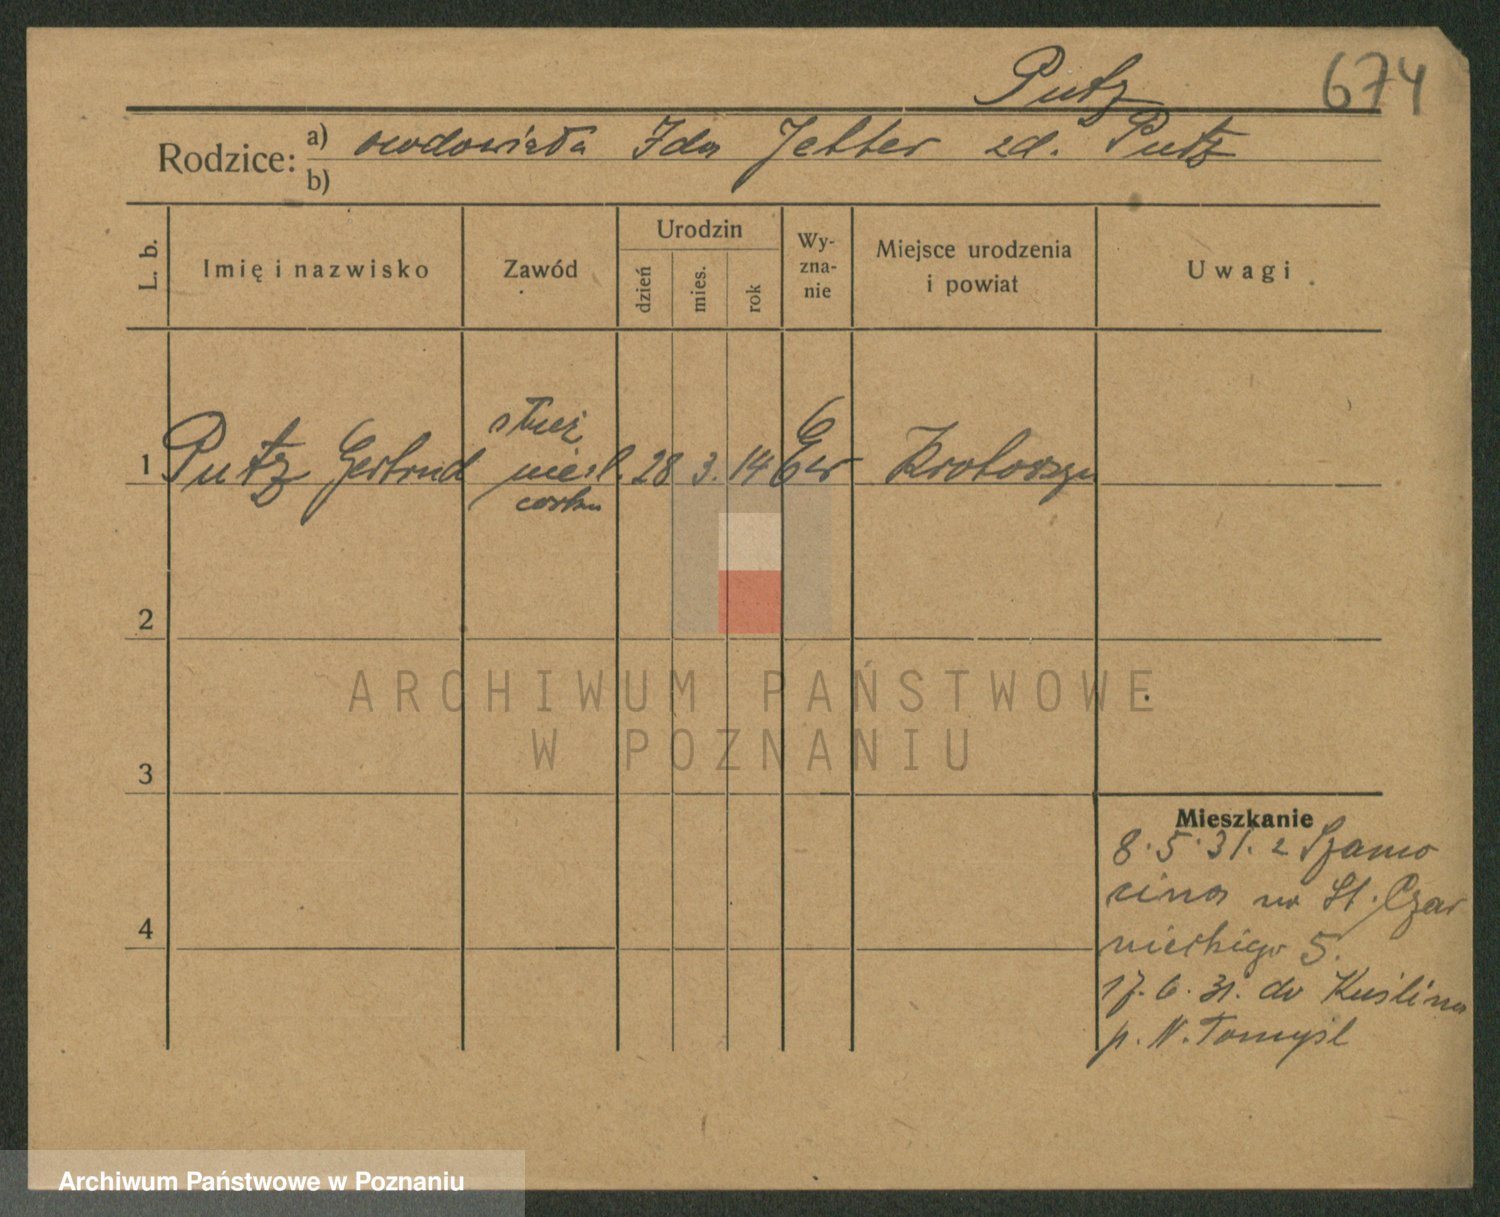 Putz 674
Rodzice: a) owdowiała Ida Jetter zd. Putz
b)
L. b. Imię i nazwisko Zawód Urodzin dzień mies. rok Wy-zna-nie Miejsce urodzenia i powiat Uwagi
służ
1 Putz Gertrud 28 3. 14 Ew Krotoszyn
córka
2
ARCHIWUM PAŃSTWOWE
W POZNANIU
3
Mieszkanie
8.5.31. z Szamo
cina na St. Czar
nieckiego 5.
4
17.6.31. do Kuślina
p. N. Tomyśl
Archiwum Państwowe w Poznaniu